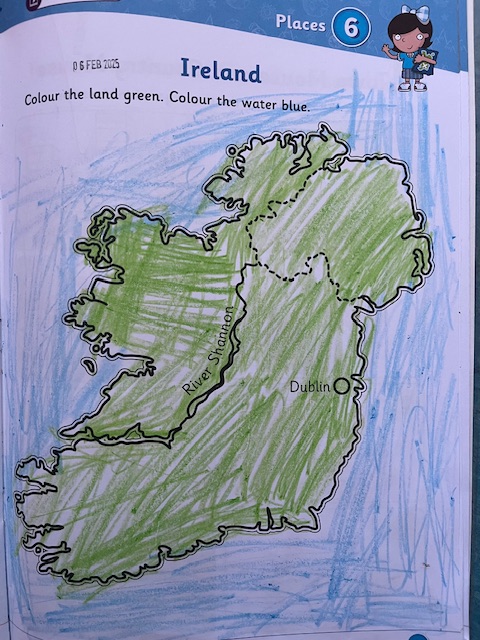 Places 6
06 FEB 2025
Ireland
Colour the land green. Colour the water blue.
River Shannon
Dublin